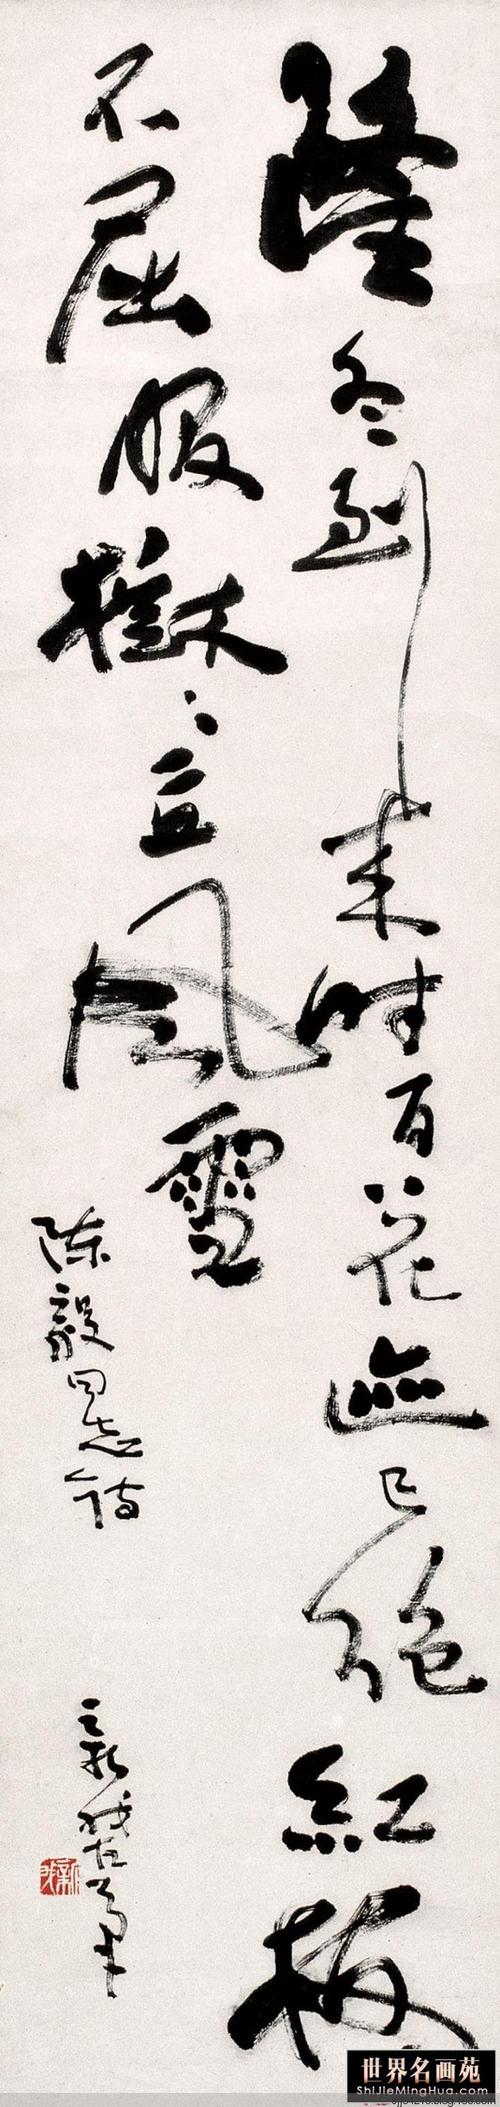 隆冬到来时百花迹已绝紅梅
不屈服樹〻立風雪
陈毅同志诗
新我左筆
世界名画苑
ShiJieMingHua.com